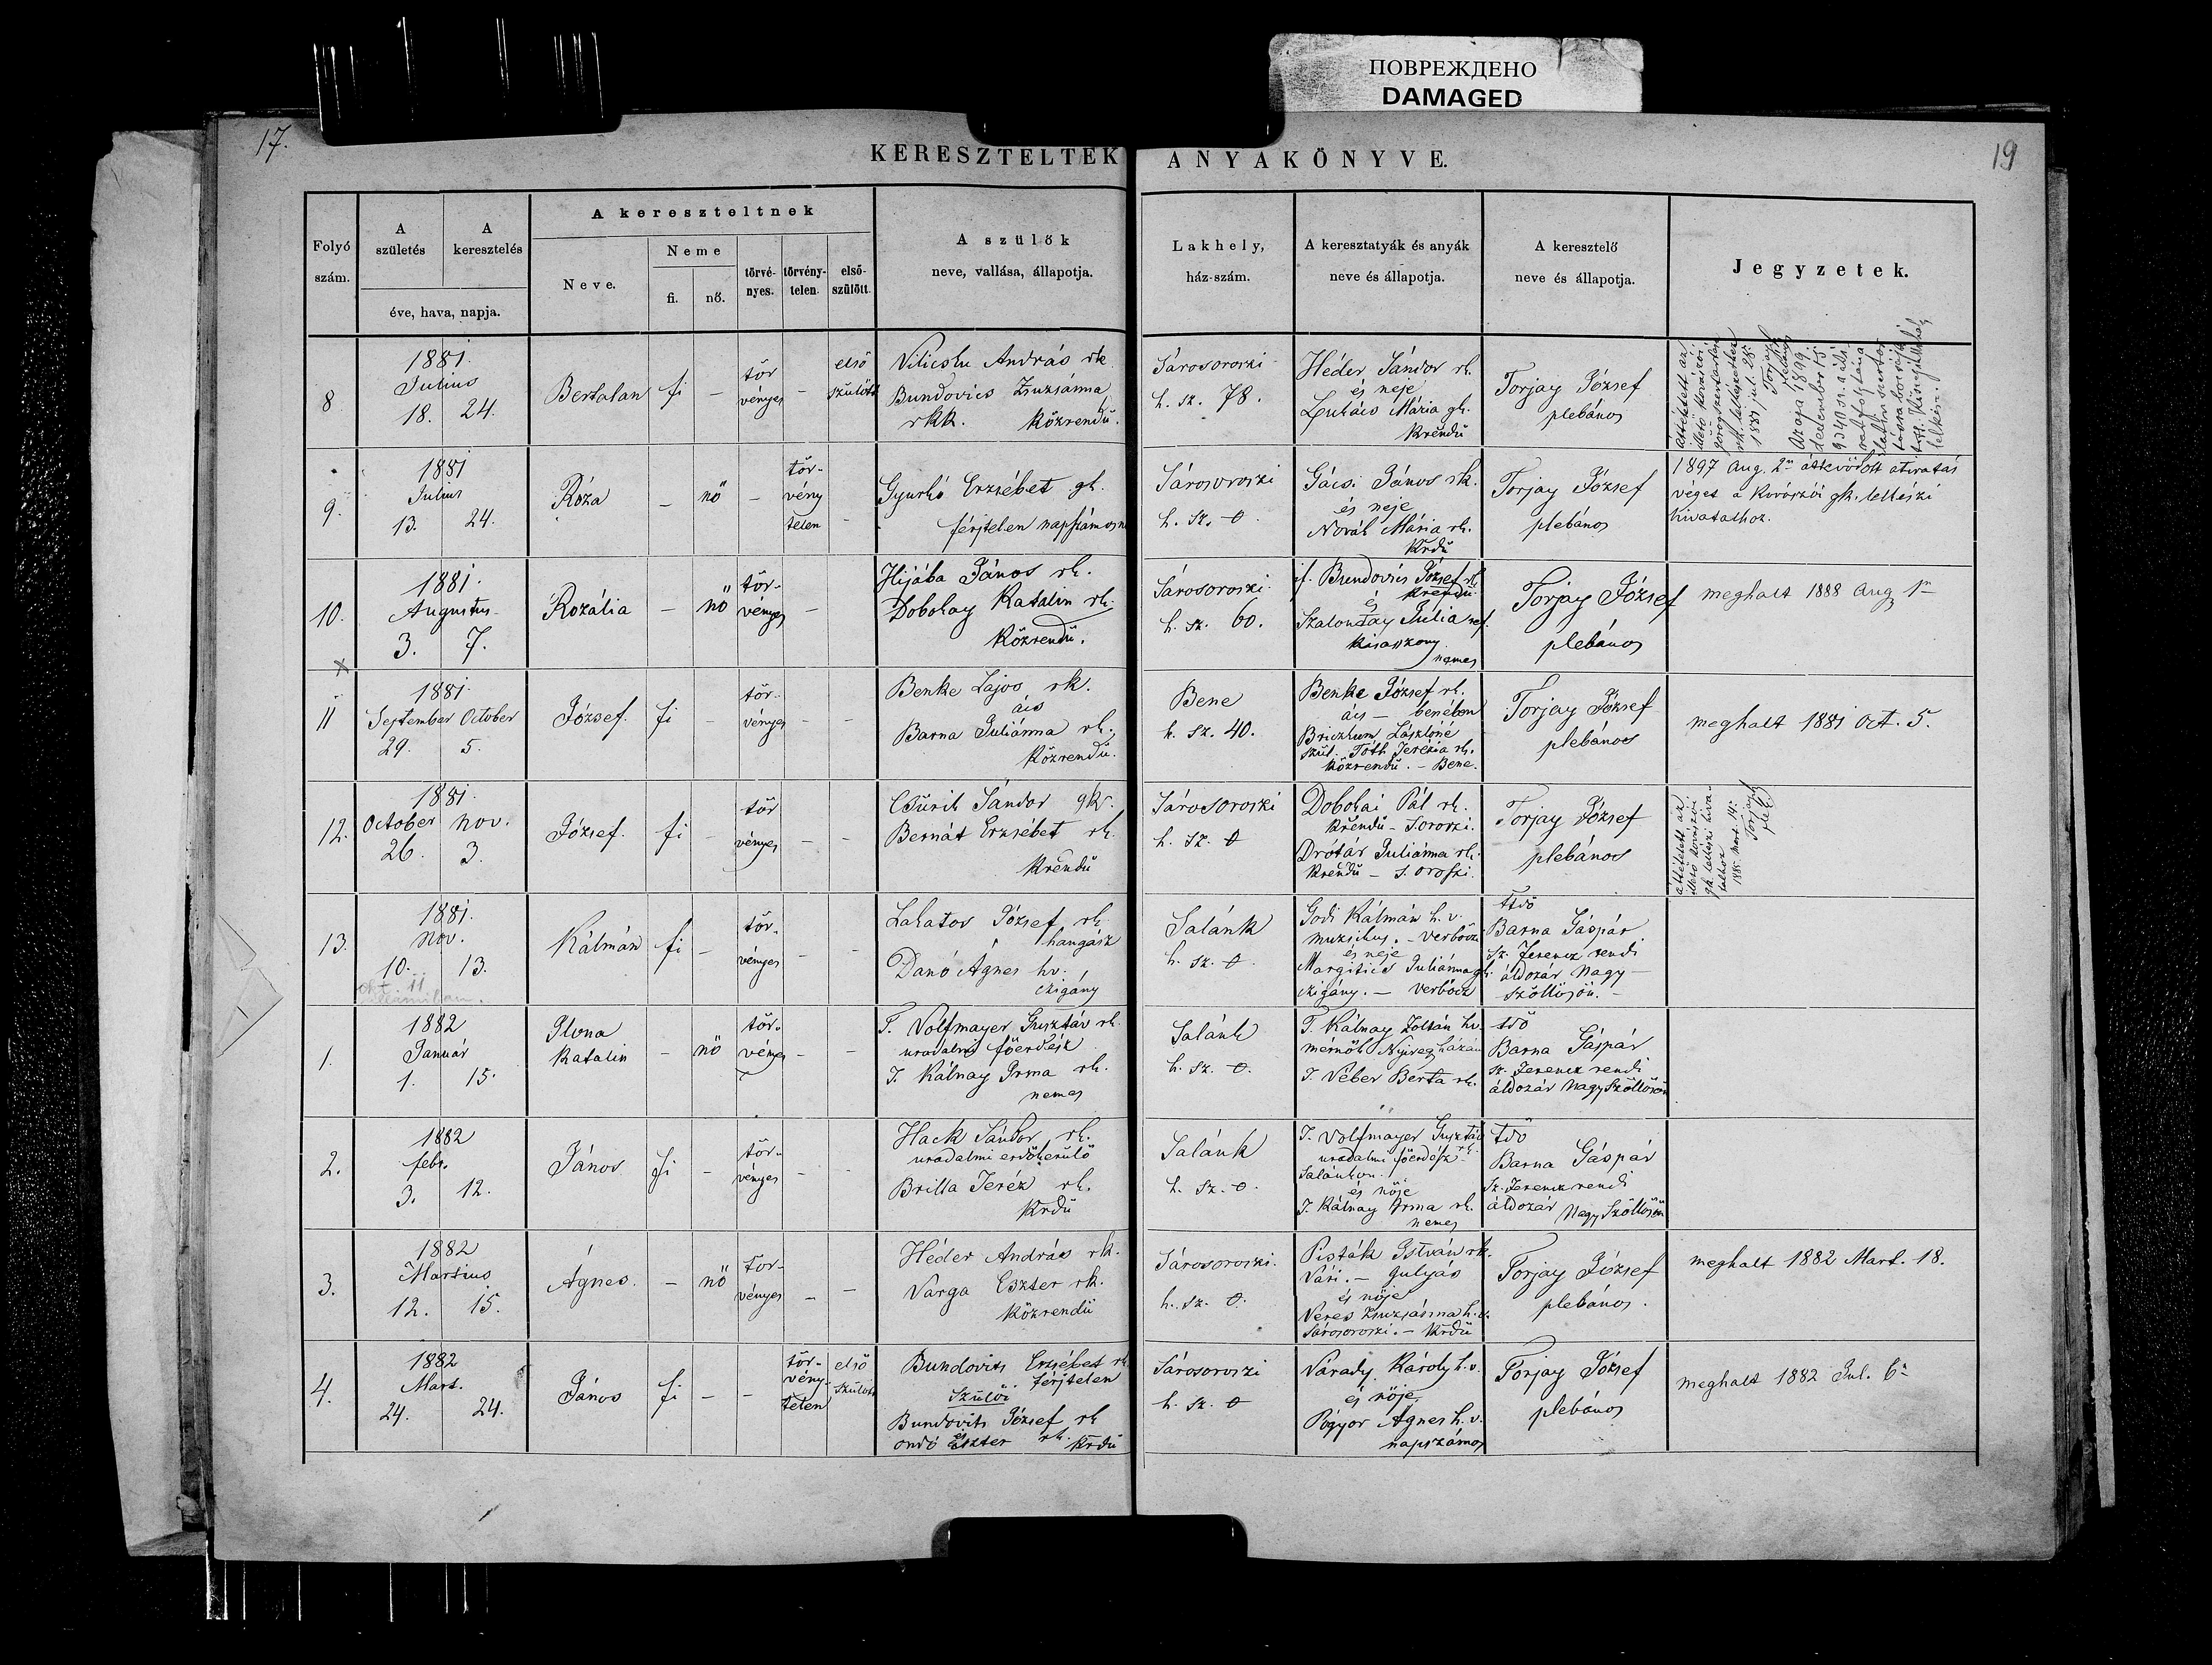 ПОВРЕЖДЕНО
DAMAGED
17.
19
KERESZTELTEK ANYAKÖNYVE.
Folyó szám.
A születés
A keresztelés
éve, hava, napja.
A kereszteltnek
Neve.
Neme
fi.
nő.
törvé-nyes.
törvény-telen.
első-szülött.
A szülők
neve, vallása, állapotja.
Lakhely,
ház-szám.
A keresztatyák és anyák
neve és állapotja.
A keresztelő
neve és állapotja.
Jegyzetek.
8
1881.
Julius
18. 24.
Bertalan
fi
–
tör
vényes
–
első
szülött
András rk
Bundovics Zsuzsánna
rkk. közrendű.
Sárosoroszi
h. sz. 78.
Héder Sándor rk.
és neje
Lukács Mária gk.
krendű
Torjay József
plebános
9.
1881
Julius
13. 24.
Róza
–
nő
–
tör-
vény
telen
–
Gyurkó Erzsébet gk.
férjtelen
Sárosoroszi
h. sz. 0.
Gácsi János rk.
és neje
Novák Mária rk.
Krdű
Torjay József
plebános
1897 aug. 2n átiratás
véget a gk. lelkészi
hivatalhoz.
10.
1881.
Augustus
3. 7.
Rozália
–
nő
tör-
vényes
–
Hijába János rk.
Dobohay Katalin rk.
Közrendű.
Sárosoroszi
h. sz. 60.
if. Bundovics József rk
Krendű
és
Julia ref.
kisasszony
nemes
Torjay József
plebános
meghalt 1888 Aug 1n
x
11
1881.
September October
29. 5.
József.
fi
–
tör-
vényes
–
–
Benke Lajos rk.
ács
Barna Juliánna rk.
Közrendű.
Bene
h. sz. 40.
Benke József rk.
ács – benében
Lászlóné
szül. Tóth Terézia rk.
közrendű. – Bene.
Torjay József
plebános
meghalt 1881 Oct. 5.
12.
1881.
October Nov.
26. 3.
József.
fi
–
tör
vényes
–
–
Sándor gk.
Bernát Erzsébet rk.
Krendű
Sárosoroszi
h. sz. 0
Dobohai Pál rk.
krendű – S.oroszi.
Drótár Juliánna rk.
krendű – S.oroszi.
Torjay József
plebános
áttétetett az
illető
gk. lelkészi hiva-
talhoz
1885. Mart. 14.
Torjay
pleb
13.
1881.
Nov.
10. 13.
Kálmán
fi
–
tör.
vényes
–
–
Lakatos József rk.
hangász
Danó Ágnes hv.
czigány
Salánk
h. sz. 0.
Godi Kálmán h. v.
muzsikus. – Verbőcz
és neje
Margitics Juliánna gk.
czigány. – Verbőcz
Ftdő
Barna Gáspár
Sz. Ferencz rendi
áldozár Nagy
Szőllősön. –
1.
1882
Január
1. 15.
Ilona
Katalin
–
nő
tör.
vényes
–
–
T. Volfmayer Gusztáv rk.
uradalmi főerdész
T. Kálnay Irma rk.
nemes
Salánk
h. sz. 0.
T. Kálnay Zoltán hv.
mérnök Nyiregyházán
T. Véber Berta rk.
tdő
Barna Gáspár
Sz. Ferencz rendi
áldozár Nagy Szőllősön
2.
1882
febr.
3. 12.
János
fi
–
tör-
vényes
–
–
Hack Sándor rk.
uradalmi erdőkerülő
Brilla Teréz rk.
Krdű
Salánk
h. sz. 0.
T. Volfmayer Gusztáv
uradalmi főerdész rk.
Salánkon.
és nője
T. Kálnay Irma rk.
nemes
tdő
Barna Gáspár
Sz. Ferencz rendi
áldozár Nagy Szőllősön
3.
1882
Martius
12. 15.
Ágnes.
–
nő
tör-
vényes
–
–
Héder András rk.
Varga Eszter rk.
Közrendű
Sárosoroszi.
h. sz. 0.
Pisták István rk.
Vári. – gulyás
és nője
Veres Zsuzsánna h. v.
Sárosoroszi. – Krdű
Torjay József
plebános.
meghalt 1882 Mart. 18.
4.
1882
Mart.
24. 24.
János
fi
–
–
tör-
vény-
telen
első
szülött
Bundovits Erzsébet rk
férjtelen
Szülői
Bundovits József rk
és
Eszter rk. Krdű
Sárosoroszi
h. sz. 0
Várady Károly h. v.
és nője
Ágnes h. v.
napszámos
Torjay József
plebános
meghalt 1882 Jul. 6n